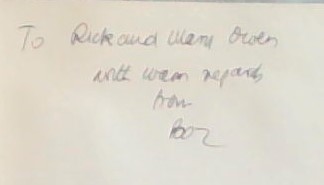 To Rick and Mary Owen
with warm regards
from